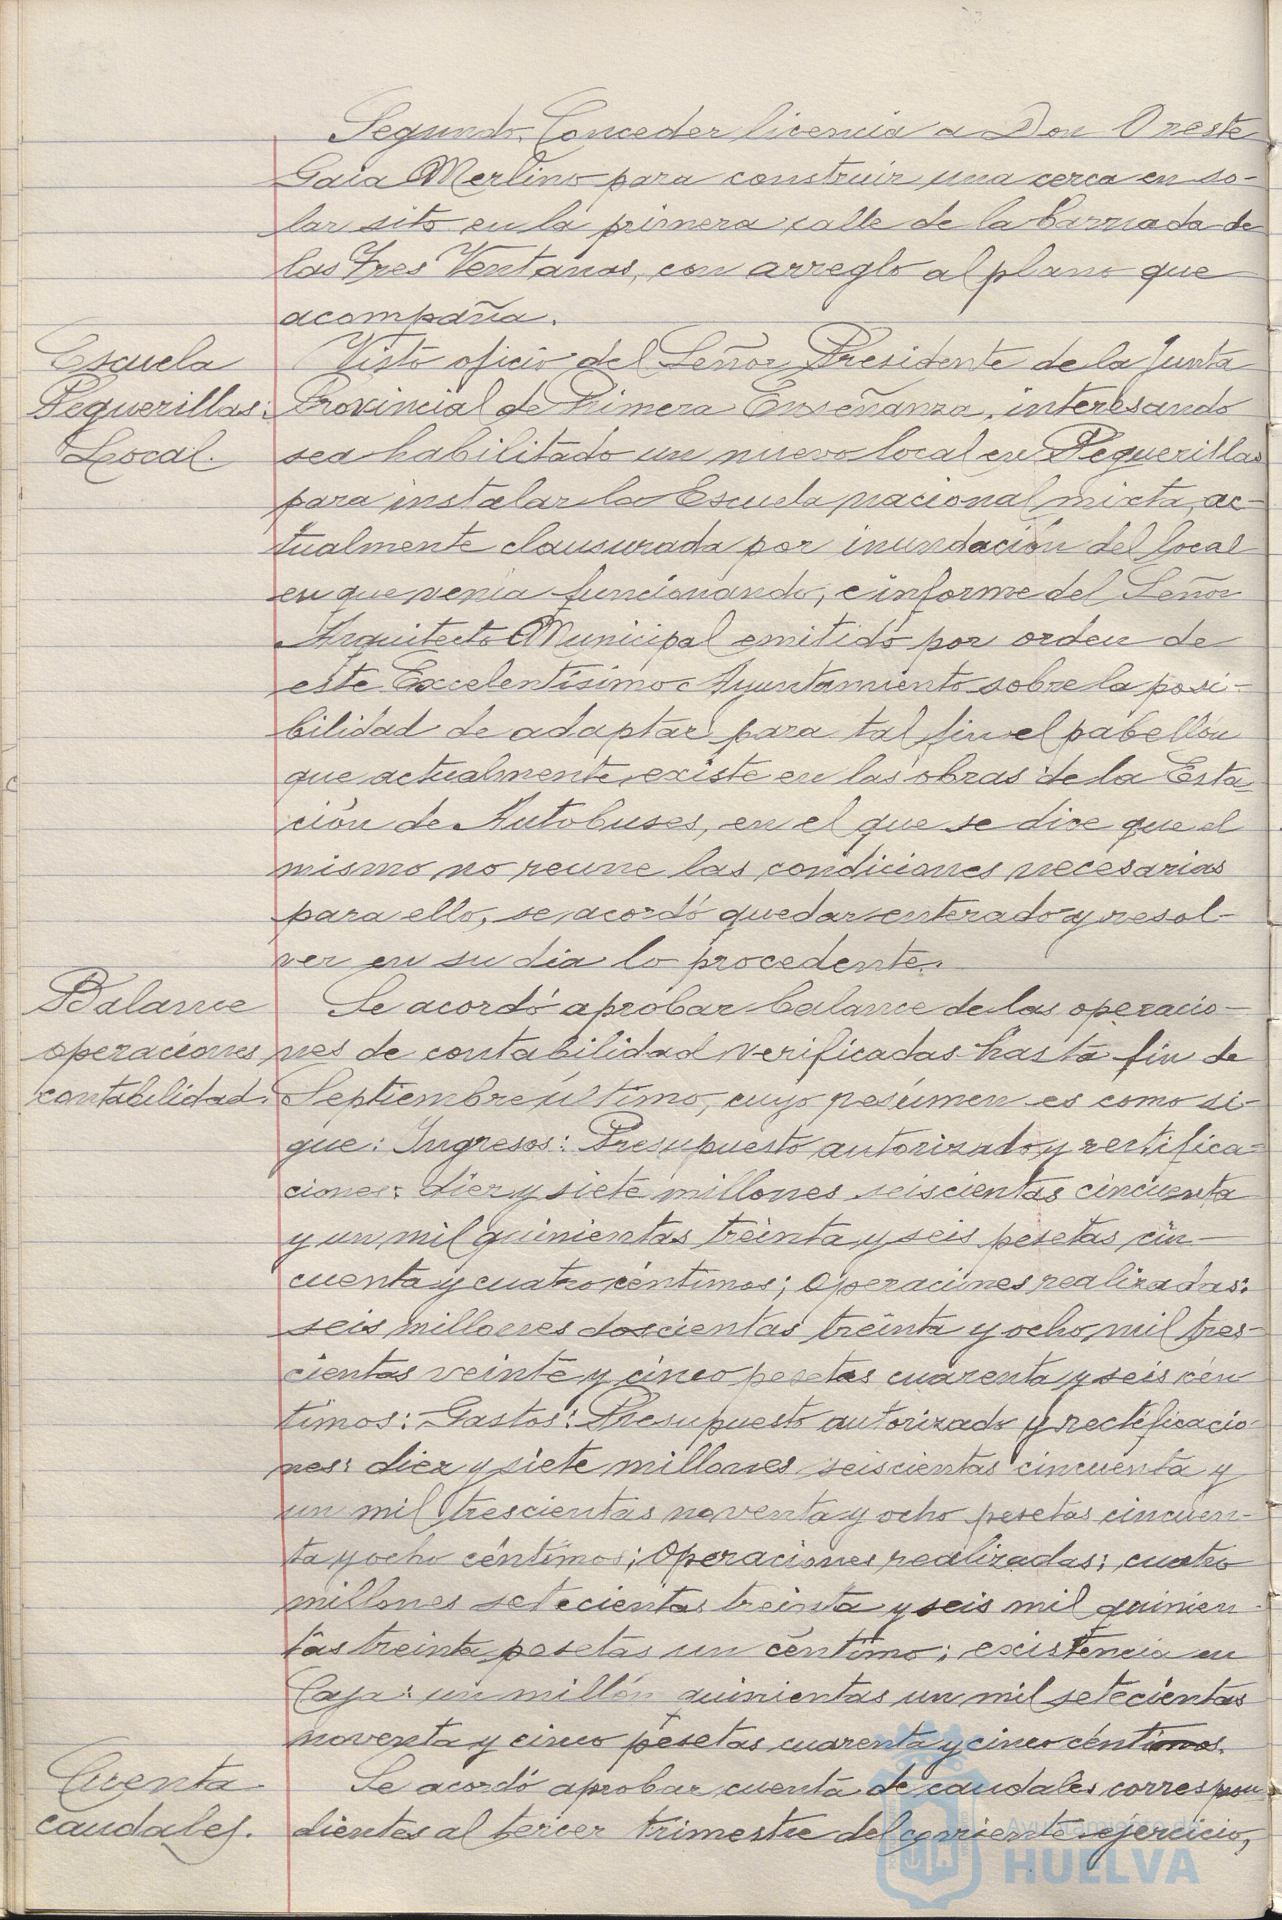 Segundo. Conceder licencia a Don Oreste
Gaia Merlino para construir una cerca en so-
lar sito en la primera calle de la barriada de
las Tres Ventanas, con arreglo al plano que
acompaña.
Escuela
Peguerillas:
Local.
Visto oficio del Señor Presidente de la Junta
Provincial de Primera Enseñanza, interesando
sea habilitado un nuevo local en Peguerillas
para instalar la Escuela nacional mixta, ac-
tualmente clausurada por inundación del local
en que venia funcionando, e informe del Señor
Arquitecto Municipal emitido por orden de
este Excelentísimo Ayuntamiento sobre la posi-
bilidad de adaptar para tal fin el pabellón
que actualmente existe en las obras de la Esta-
ción de Autobuses, en el que se dice que el
mismo no reune las condiciones necesarias
para ello, se acordó quedar enterado y resol-
ver en su dia lo procedente.
Balance
operaciones
contabilidad.
Se acordó aprobar balance de las operacio-
nes de contabilidad verificadas hasta fin de
Septiembre último, cuyo resúmen es como si-
gue: Ingresos: Presupuesto autorizado y rectifica-
ciones: diez y siete millones seiscientas cincuenta
y un mil quinientas treinta y seis pesetas cin-
cuenta y cuatro céntimos; operaciones realizadas:
seis millones doscientas treinta y ocho mil tres-
cientas veinte y cinco pesetas cuarenta y seis cén
timos: Gastos: Presupuesto autorizado y rectificacio-
nes: diez y siete millones seiscientas cincuenta y
un mil trescientas noventa y ocho pesetas cincuen-
ta y ocho céntimos; operaciones realizadas; cuatro
millones setecientas treinta y seis mil quinien-
tas treinta pesetas un céntimo; existencia en
Caja: un millón quinientas un mil setecientas
noventa y cinco pesetas cuarenta y cinco céntimos.
Cuenta
caudales.
Se acordó aprobar cuenta de caudales correspon
dientes al tercer trimestre del corriente ejercicio,
Ayuntamiento de
HUELVA